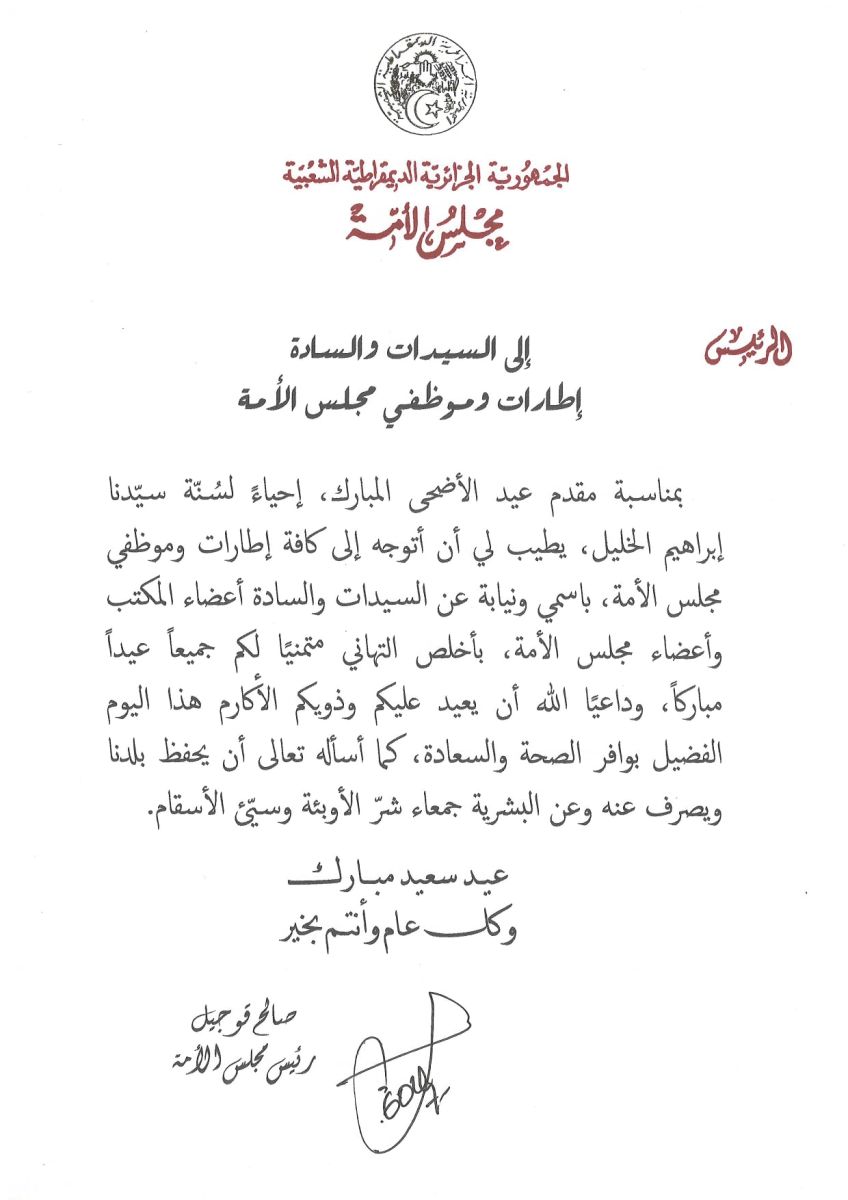 الجمهورية الجزائرية الديمقراطية الشعبية
الجمْهُوريّة الجزائريّة الديمقراطيّة الشعْبيّة
مجْلسُ الأمّة
الرئيس
إلى السيدات والسادة
إطارات وموظفي مجلس الأمة
بمناسبة مقدم عيد الأضحى المبارك، إحياءً لسُنّة سيّدنا
إبراهيم الخليل، يطيب لي أن أتوجه إلى كافة إطارات وموظفي
مجلس الأمة، باسمي ونيابة عن السيدات والسادة أعضاء المكتب
وأعضاء مجلس الأمة، بأخلص التهاني متمنيًا لكم جميعاً عيداً
مباركاً، وداعيًا الله أن يعيد عليكم وذويكم الأكارم هذا اليوم
الفضيل بوافر الصحة والسعادة، كما أسأله تعالى أن يحفظ بلدنا
ويصرف عنه وعن البشرية جمعاء شرّ الأوبئة وسيّئ الأسقام.
عيد سعيد مبارك
وكل عام وأنتم بخير
صالح قوجيل
رئيس مجلس الأمة